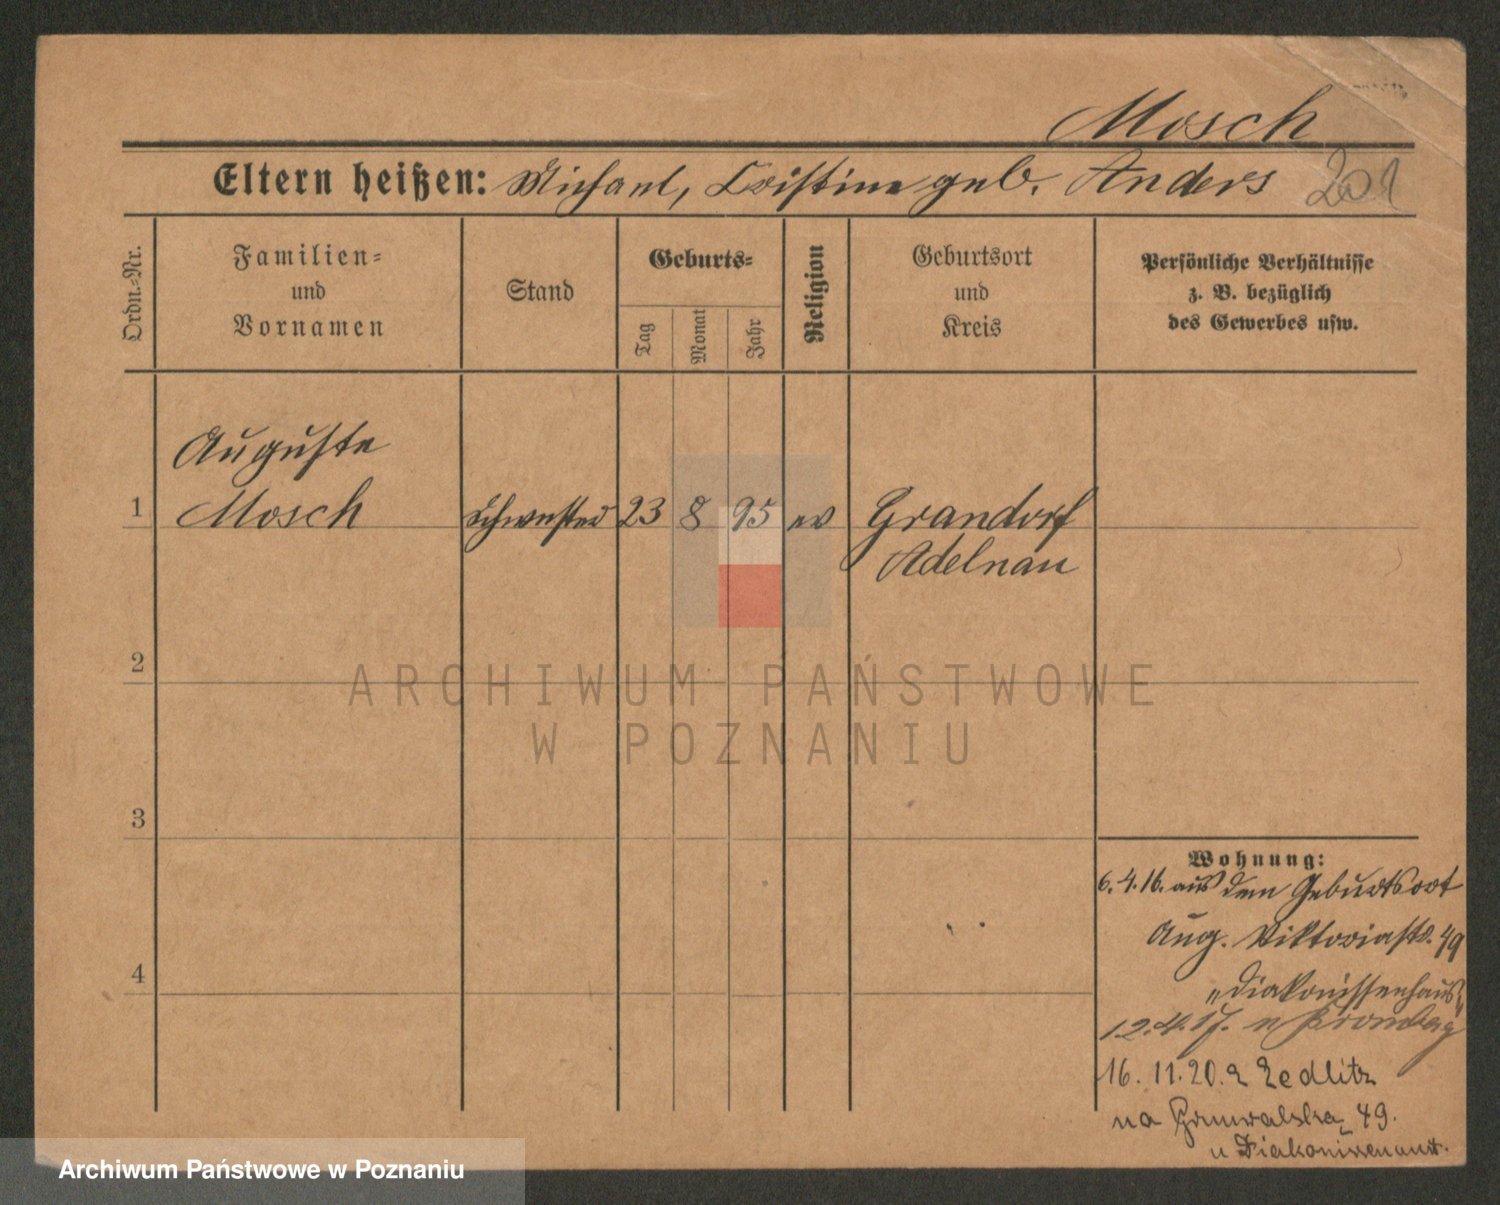 Mosch
Eltern heißen: Michael, Cristine geb. Anders 201
Ordn.-Nr.
Familien-
und
Vornamen
Stand
Geburts-
Tag
Monat
Jahr
Religion
Geburtsort
und
Kreis
Persönliche Verhältnisse
z. B. bezüglich
des Gewerbes usw.
Auguste
1 Mosch Schwester 23 8 95 ev Grandorf
Adelnau
2
ARCHIWUM PAŃSTWOWE
W POZNANIU
3
Wohnung:
6.4.16. aus dem Geburtsort
Aug. Viktoriastr. 49
"Diakonissenhaus"
4
12.4.17. n Bromberg
16. 11. 20. z Zedlitz
na Grunwalska 49.
u Diakonissenanst.
Archiwum Państwowe w Poznaniu